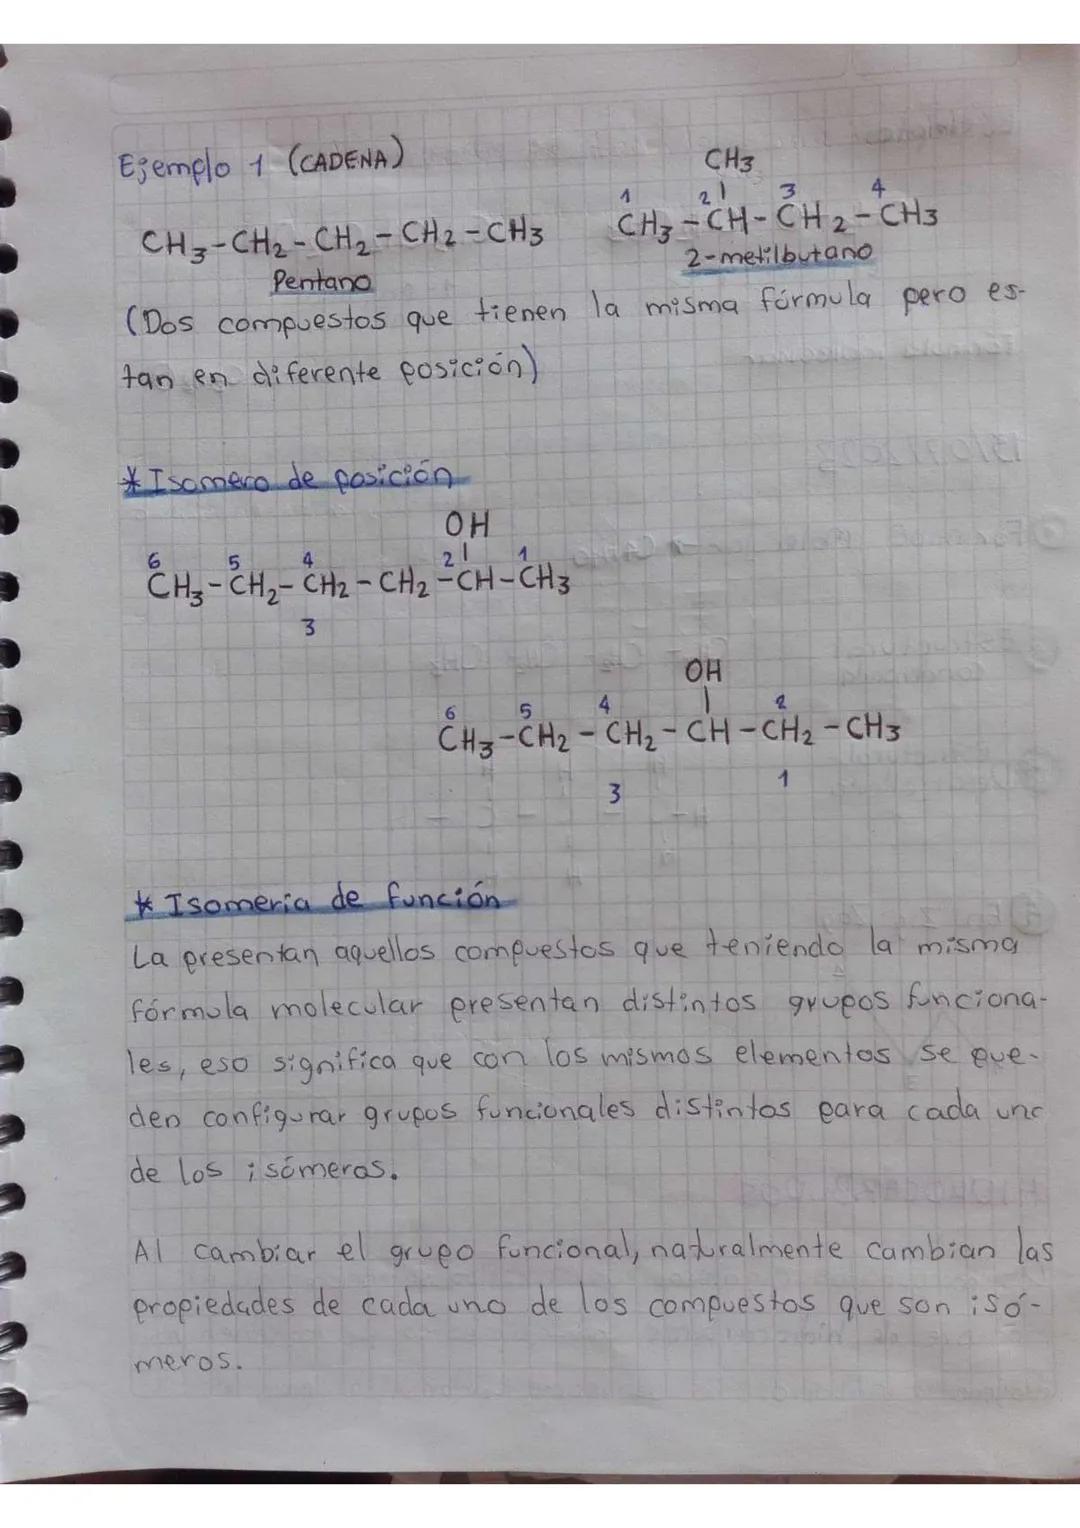 Ejemplo 1 (CADENA)
CH3-CH2-CH2-CH2-CH3
Pentano
CH3
1 2 3 4
CH3-CH-CH2-CH3
2-metilbutano
(Dos compuestos que tienen la misma fórmula pero es-
tan en diferente posición)
* Isomero de posición
OH
6 5 4 2 1
CH3-CH2-CH2-CH2-CH-CH3
3
OH
6 5 4 2
CH3-CH2-CH2-CH-CH2-CH3
3 1
* Isomeria de función
La presentan aquellos compuestos que teniendo la misma
fórmula molecular presentan distintos grupos funciona-
les, eso significa que con los mismos elementos se pue-
den configurar grupos funcionales distintos para cada uno
de los isómeros.
Al cambiar el grupo funcional, naturalmente cambian las
propiedades de cada uno de los compuestos que son isó-
meros.